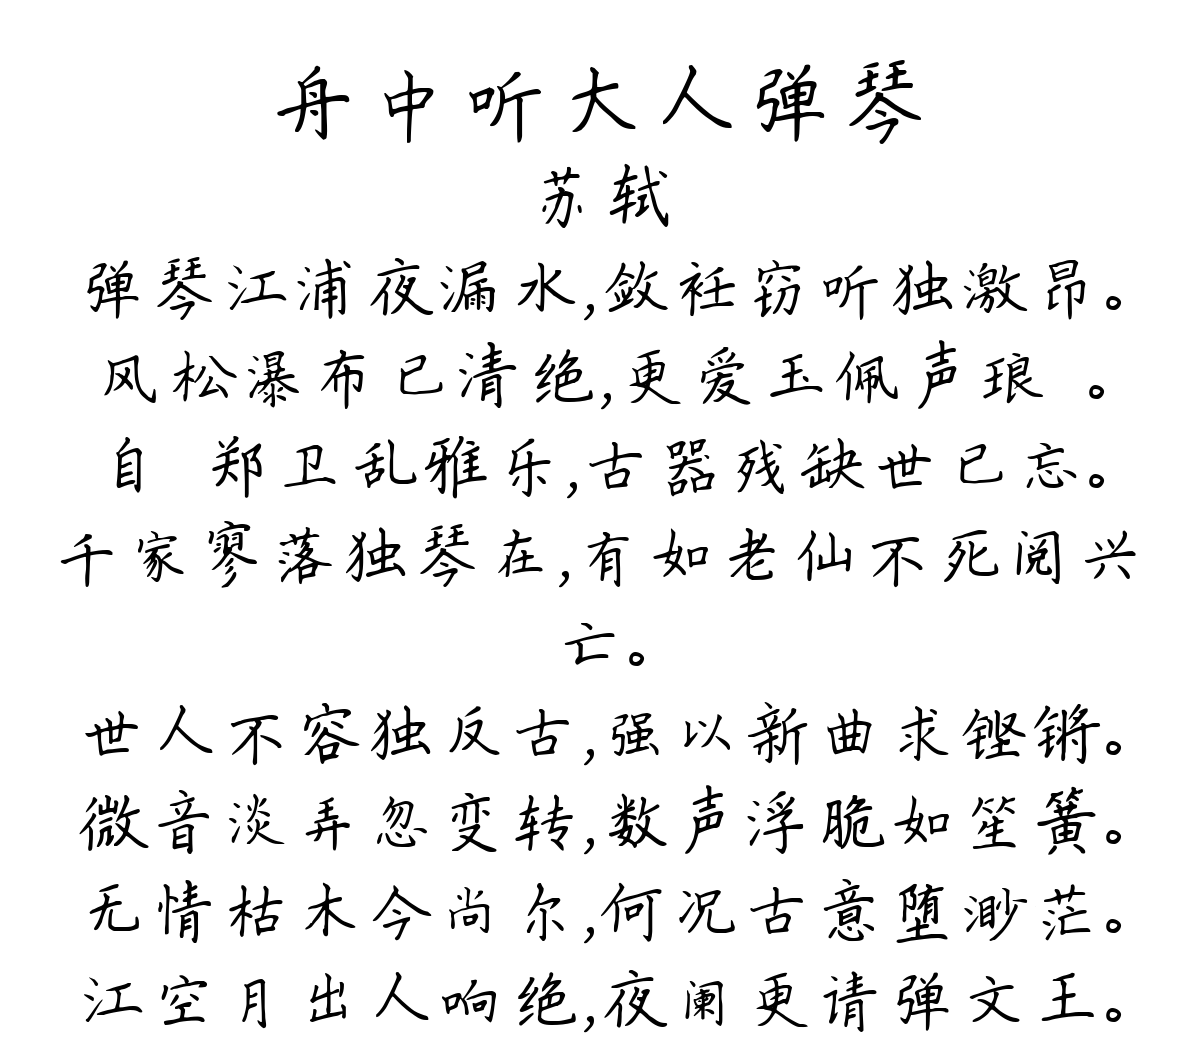 舟中听大人弹琴
苏轼
弹琴江浦夜漏水,敛衽窃听独激昂。
风松瀑布已清绝,更爱玉佩声琅 。
自 郑卫乱雅乐,古器残缺世已忘。
千家寥落独琴在,有如老仙不死阅兴
亡。
世人不容独反古,强以新曲求铿锵。
微音淡弄忽变转,数声浮脆如笙簧。
无情枯木今尚尔,何况古意堕渺茫。
江空月出人响绝,夜阑更请弹文王。